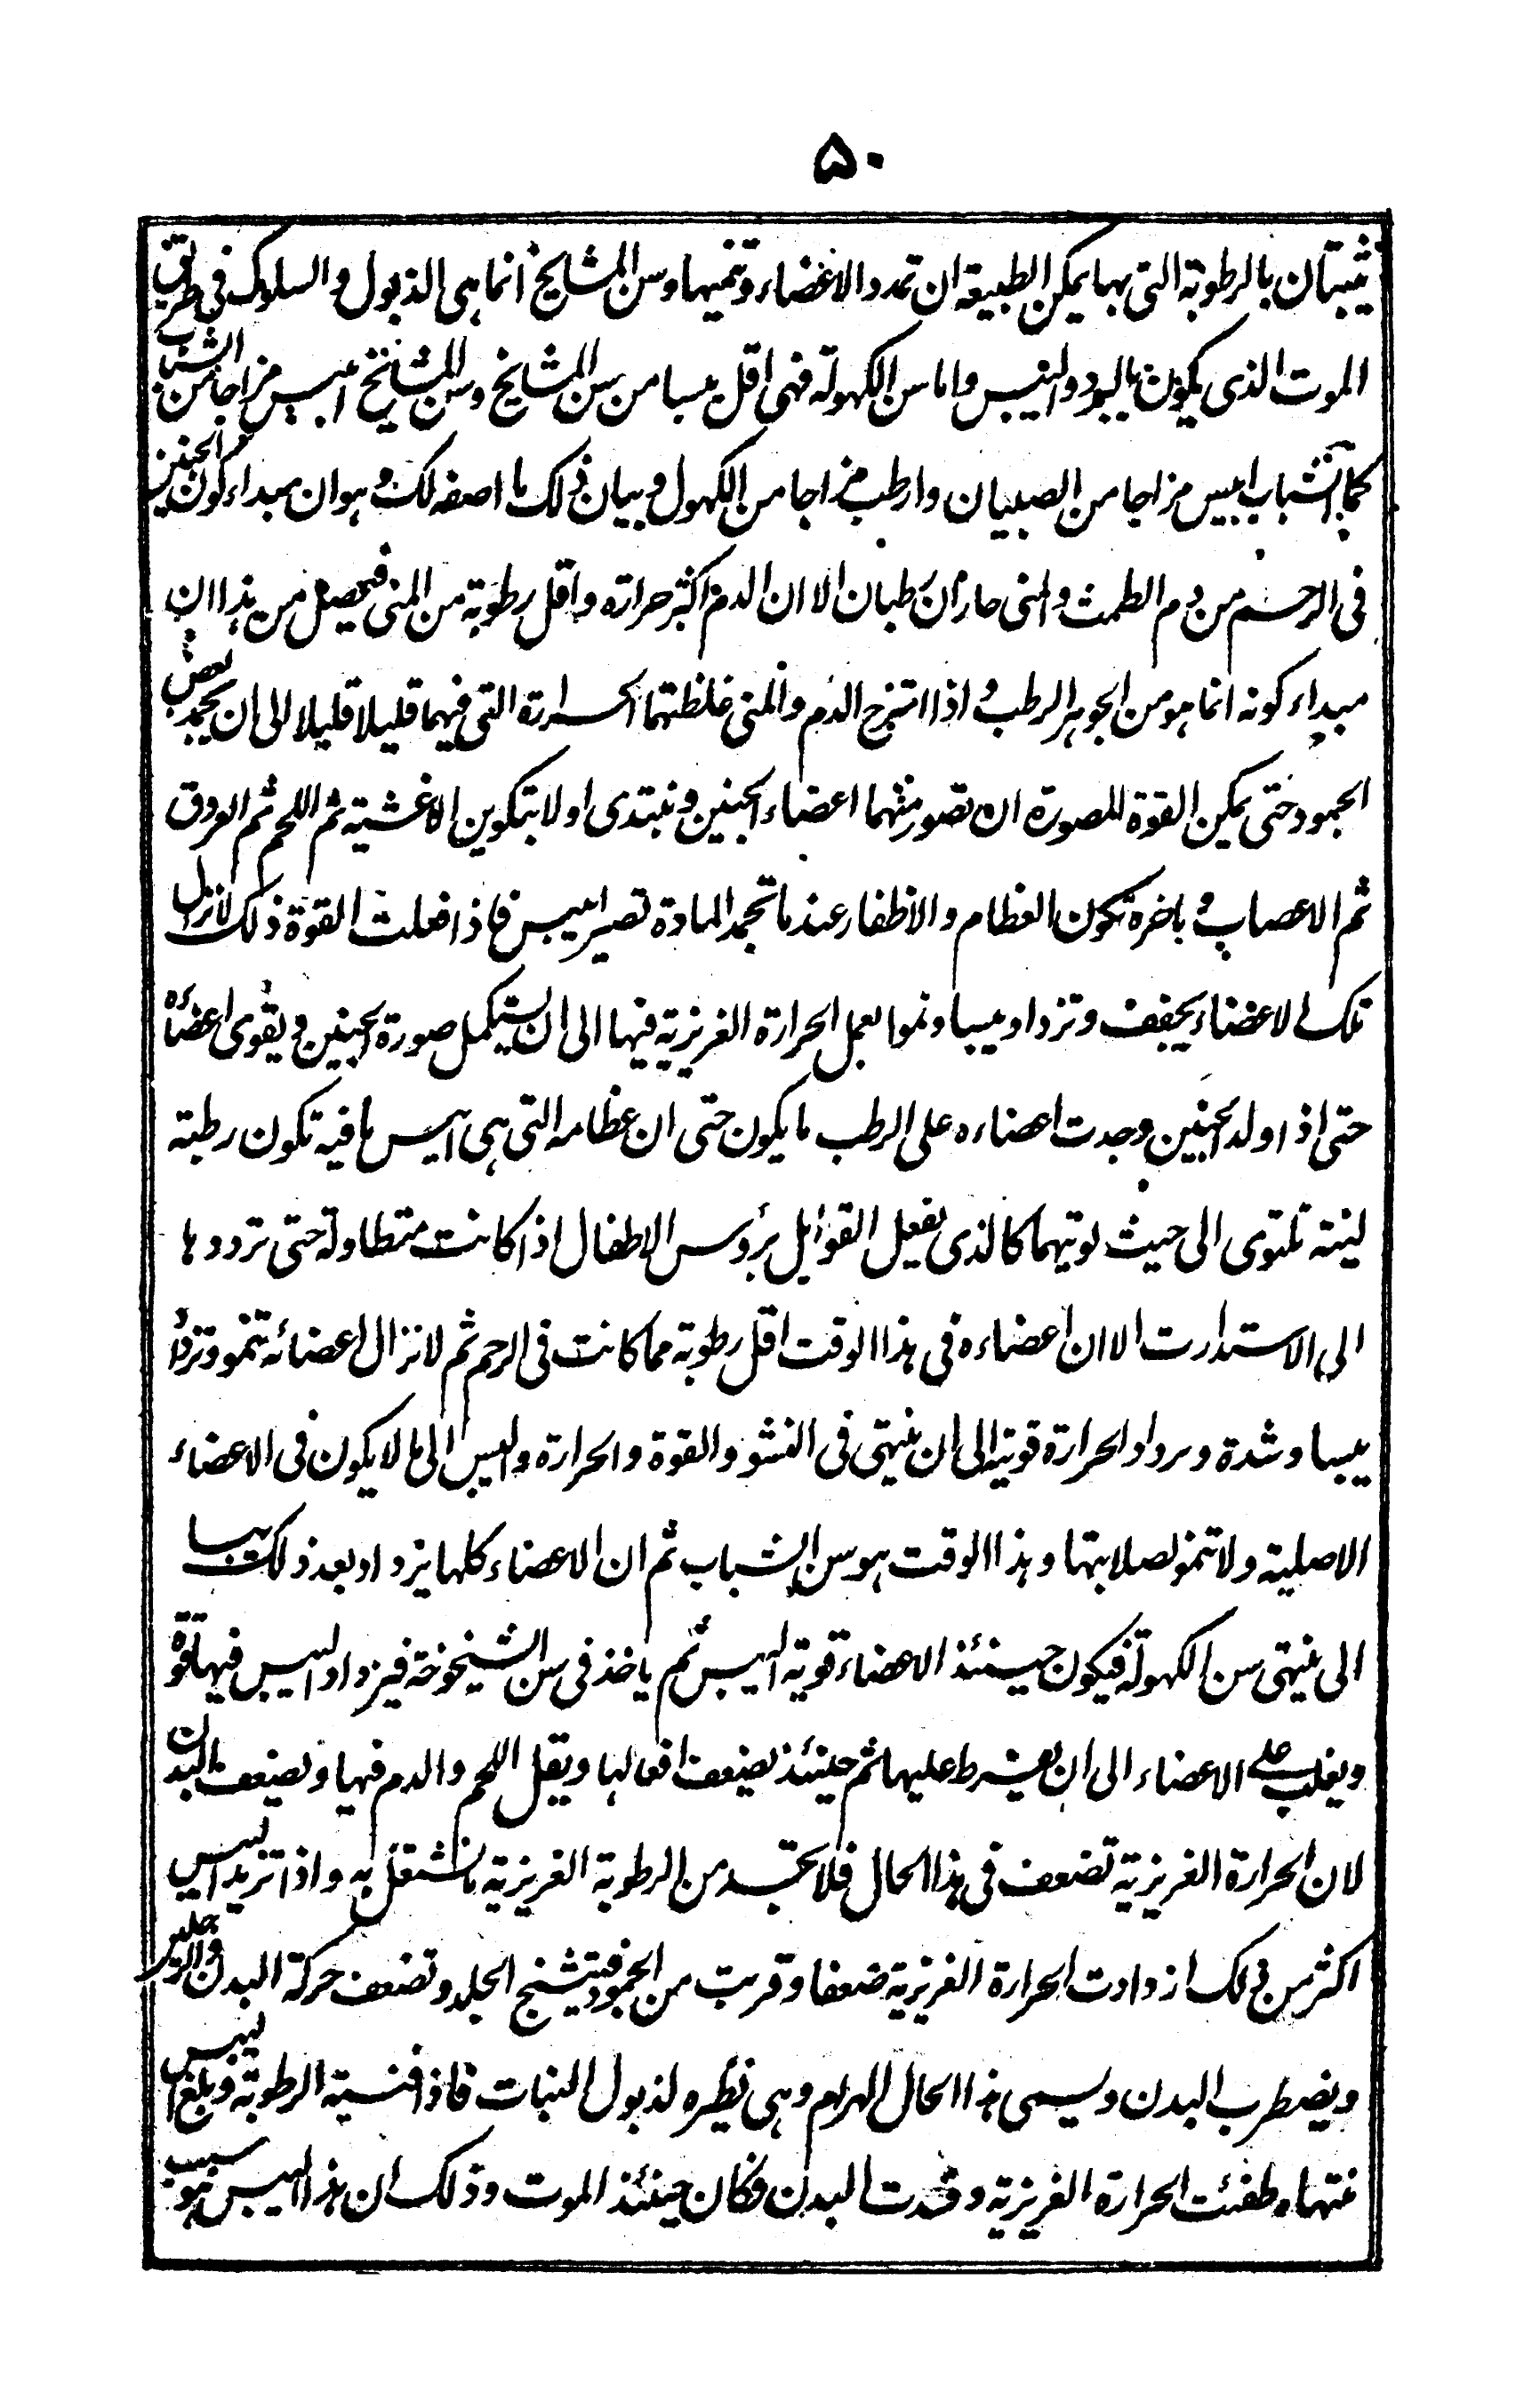 ۵۰
يثبتان بالرطوبة التى بها يمكن الطبيعة ان تمدد الاعضاء وتنميها وسن المشايخ انما هى الذبول والسلوك فى طريق
الموت الذى يكون بالبرد واليبس واما سن الكهولة فهى اقل يبسا من سن المشايخ وسن المشايخ ايبس مزاجا من الشباب
كما الشباب ايبس مزاجا من الصبيان وارطب مزاجا من الكهول وبيان ذلك ما اصفه لك وهو ان مبداء كون الجنين
فى الرحم من دم الطمث والمنى حاران رطبان الا ان الدم اكثر حرارة واقل رطوبة من المنى فيحصل من هذا ان
مبداء كونه انما هو من الجوهر الرطب و اذا امتزج الدم والمنى غلظتهما الحرارة التى فيهما قليلا قليلا الى ان يجمد بعض
الجمود حتى يمكن القوة للمصورة ان تصور منهما اعضاء الجنين وتبتدى اولا بتكوين الاغشية ثم اللحم ثم العروق
ثم الاعصاب و باخرة تكون العظام والاظفار عند ما تجمد المادة تصير ايبس فاذا فعلت القوة ذلك لا تزال
تلك الاعضاء يجفف وتزداد يبسا ونموا بعمل الحرارة الغريزية فيها الى ان يستكمل صورة الجنين و يقوى اعضاءه
حتى اذا ولد الجنين وجدت اعضاءه على الرطب ما يكون حتى ان عظامه التى هى ايبس ما فيه تكون رطبة
لينة تلتوى الى حيث لويتهما كالذى يفعل القوابل برؤس الاطفال اذا كانت متطاولة حتى ترددها
الى الاستدارت الا ان اعضاءه فى هذا الوقت اقل رطوبة مما كانت فى الرحم ثم لا تزال اعضائه تنمو وتزداد
يبسا وشدة وىرداد الحرارة قوية الى ان ينتهى فى النشو والقوة والحرارة واليبس الى ما لا يكون فى الاعضاء
الاصلية ولا تنمو لصلابتها وهذا الوقت هو سن الشباب ثم ان الاعضاء كلها يزداد بعد ذلك يبسا
الى ينتهى سن الكهولة فيكون حينئذ الاعضاء قوية اليبس ثم ياخذ فى سن الشيخوخة فيزداد اليبس فيها قوة
ويغلب على الاعضاء الى ان يفرط عليها ثم حينئذ يضعف افعالها ويقل اللحم والدم فيها ويضعف البدن
لان الحرارة الغريزية تضعف فى هذا الحال فلا تجد من الرطوبة الغريزية ما تشتغل به واذا تزيد اليبس
اكثر من ذلك ازدادت الحرارة الغريزية ضعفا وقربت من الجمود فيتشنج الجلد وتضعف حركة البدن والرجلين
ويضطرب البدن ويسمى هذا الحال الهرم وهى نظيره لذبول النبات فاذا فنيت الرطوبة وبلغ اليبس
منتهاه طفئت الحرارة الغريزية وفسدت البدن فكان حينئذ الموت وذلك ان هذا اليبس هو سبب